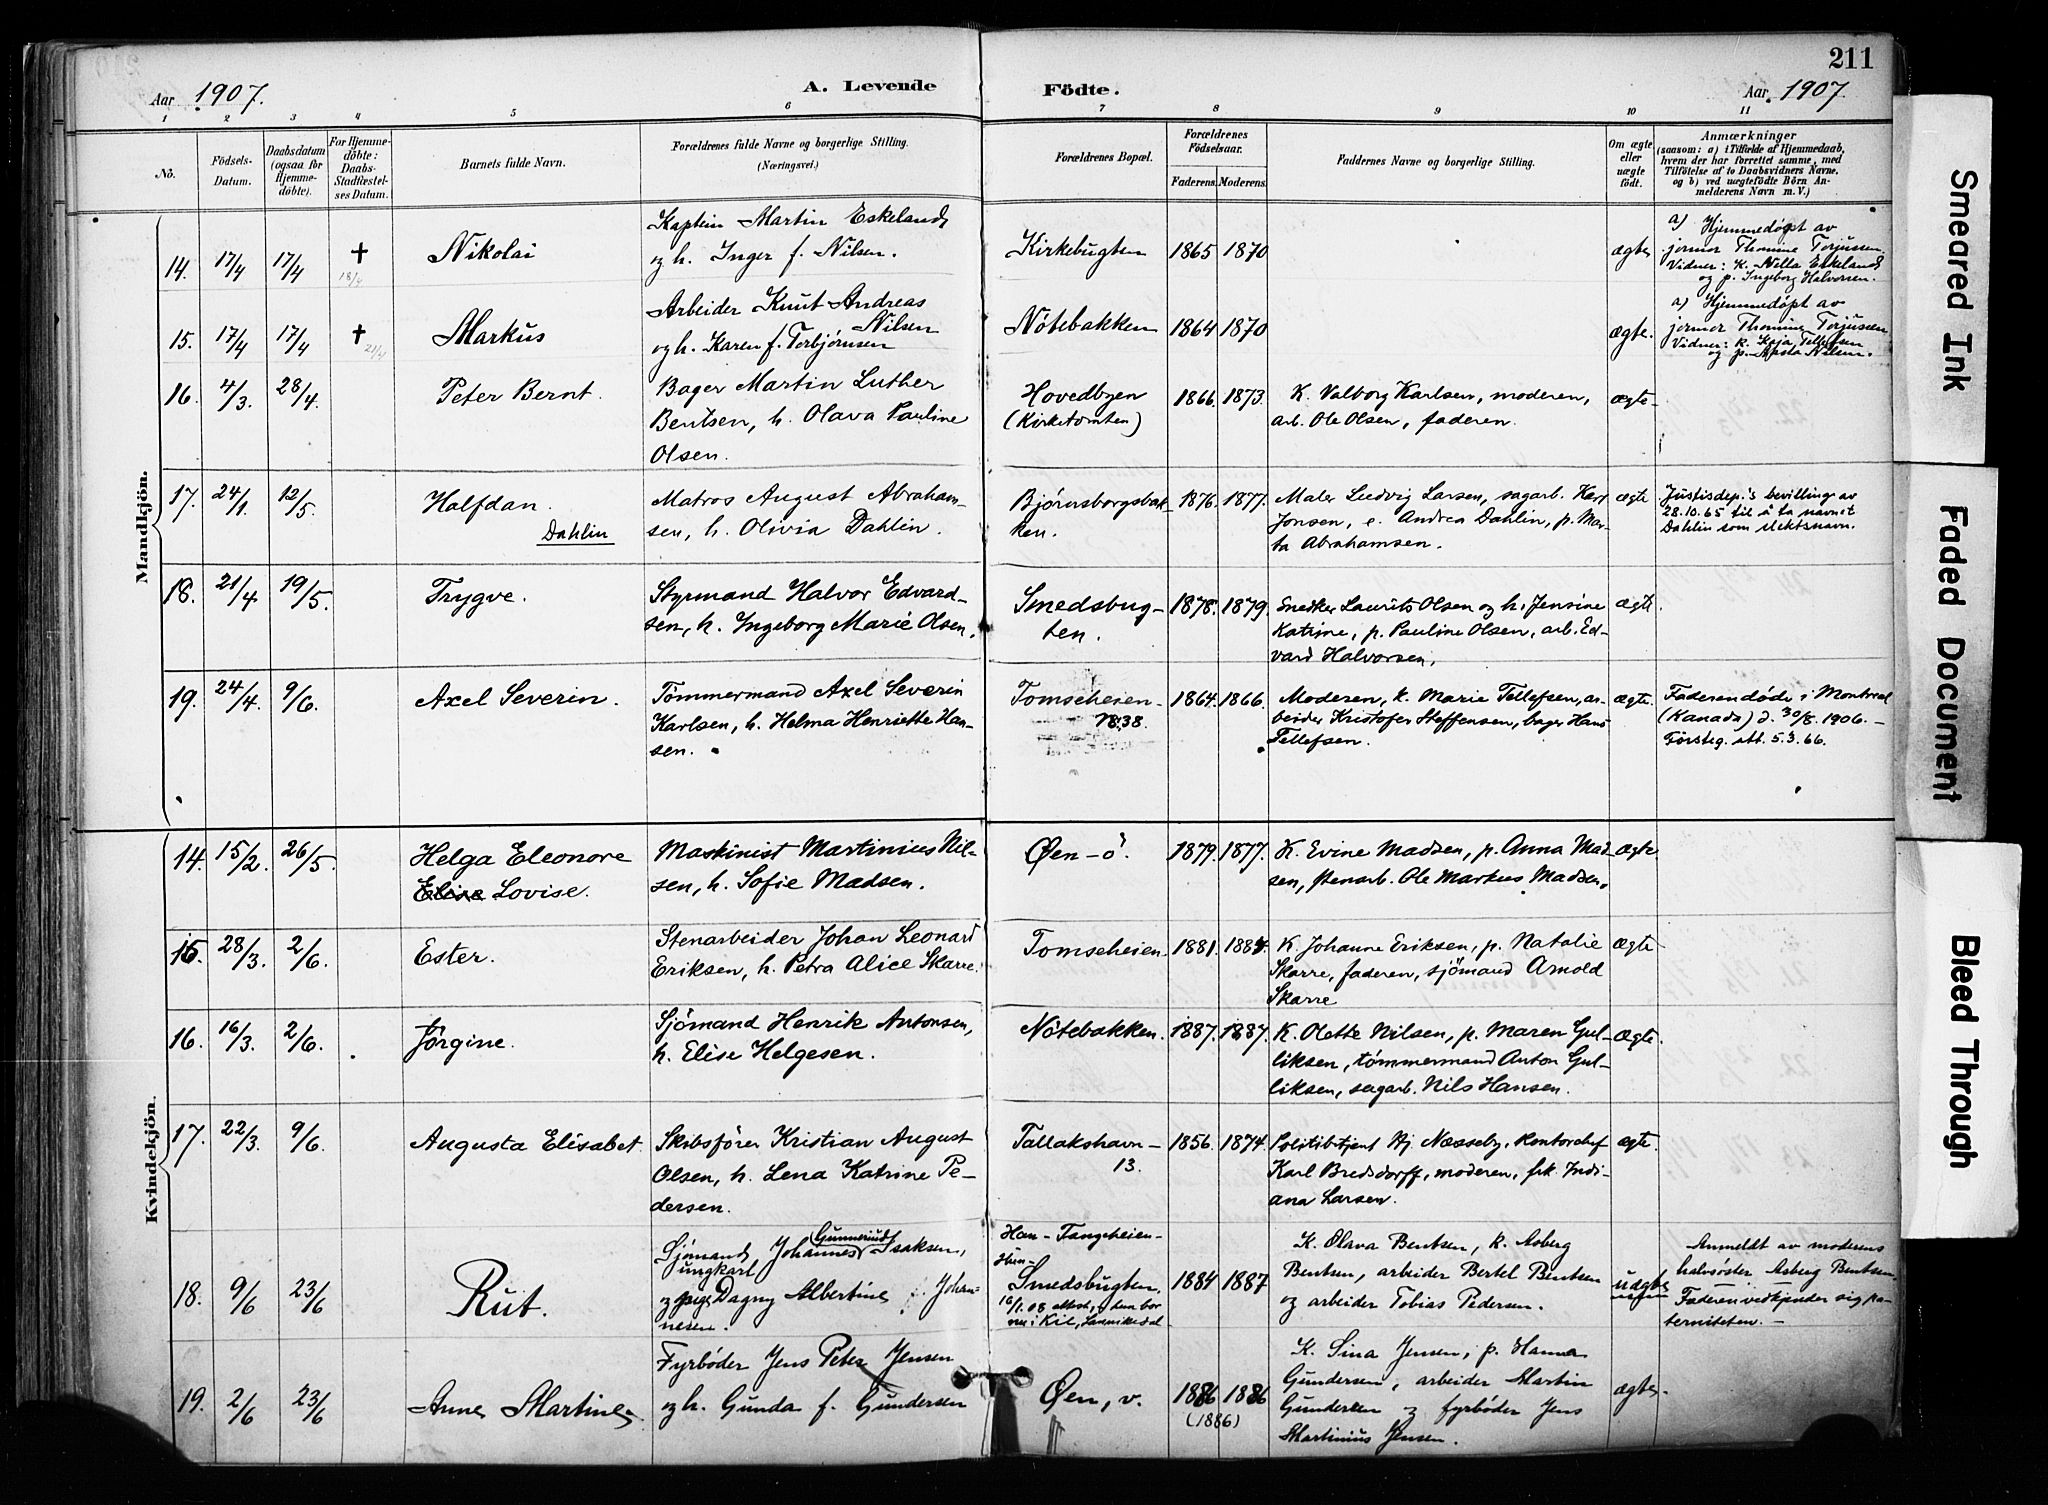 211
Aar 1907.
A. Levende Födte.
Aar 1907.
1 2 3 4 5 6 7 8 9 10 11
No.
Födsels-
Datum.
Daabsdatum
(ogsaa for
Hjemme-
döbte).
For Hjemme-
döbte:
Daabs-
Stadfæstel-
ses Datum.
Barnets fulde Navn.
Forældrenes fulde Navne og borgerlige Stilling.
(Næringsvei.)
Forældrenes Bopæl.
Forældrenes
Födselsaar.
Faderens. Moderens.
Faddernes Navne og borgerlige Stilling.
Om ægte
eller
uægte
födt.
Anmærkninger
(saasom: a) i Tilfælde af Hjemmedaab,
hvem der har forrettet samme, med
Tilföielse af to Daabsvidners Navne,
og b) ved uægtefödte Börn An-
melderens Navn m. V.)
Mandkjön.
14. 17/4 17/4 † 18/4 Nikolai
Kaptein Martin Eskeland
og h. Inger f. Nilsen.
Kirkebugten 1865 1870
ægte
a) Hjemmedøpt av
jormor Thomine Torjussen
Vidner: k. Nilla Eskeland
og p. Ingeborg Halvorsen.
15. 17/4 17/4 † 21/4 Markus
Arbeider Knut Andreas
Nilsen
og h. Karen f. Torbjørnsen
Nötebakken 1864 1870
ægte.
a) Hjemmedøpt av
jormor Thomine Torjussen
Vidner: k. Kaja Tellefsen
og p. Nilsen.
16. 4/3. 28/4. Peter Bernt.
Bager Martin Luther
Bentsen, h. Olava Pauline
Olsen.
Hovedbyen
(Kirketomten)
1866. 1873.
K. Valborg Karlsen, moderen,
arb. Ole Olsen, faderen.
ægte
17. 24/1. 12/5. Halfdan.
Dahlin
Matros August Abraham-
sen, h. Olivia Dahlin.
Bjørnsborgsbak-
ken.
1876. 1877.
Maler Ludvig Larsen, sagarb. Karl
Jonsen, e. Andrea Dahlin, p. Mar-
ta Abrahamsen.
ægte
Justisdep.'s bevilling av
28.10.65 til å ta navnet
Dahlin som slektsnavn.
18. 21/4 19/5. Trygve.
Styrmand Halvor Edvard-
sen, h. Ingeborg Marie Olsen.
Smedsbug-
ten.
1878. 1879.
Snedker Laurits Olsen og h. Jensine
Katrine, p. Pauline Olsen, arb. Ed-
vard Halvorsen.
ægte
19. 24/4. 9/6. Axel Severin.
Tömmermand Axel Severin
Karlsen, h. Helma Henriette Han-
sen.
Tomseheien
N. 38.
1864. 1866.
Moderen, k. Marie Tellefsen, ar-
beider Kristofer Steffensen, bager Hans
Tellefsen.
ægte.
Faderen døde i Montreal
(Kanada) d. 30/8. 1906. –
Försteg. att. 5.3.66.
Kvindekjön.
14. 15/2. 26/5. Helga Eleonore
Elise Lovise.
Maskinist Martinius Nil-
sen, h. Sofie Madsen.
Øen – ö. 1879. 1877.
K. Evine Madsen, p. Anna Mad-
sen, stenarb. Ole Markus Madsen.
ægte
15. 28/3. 2/6. Ester.
Stenarbeider Johan Leonard
Eriksen, h. Petra Alice Skarre.
Tomseheien 1881. 1884.
K. Johanne Eriksen, p. Natalie
Skarre, faderen, sjömand Arnold
Skarre
ægte
16. 16/3. 2/6. Jörgine.
Sjömand Henrik Antonsen,
h. Elise Helgesen.
Nötebakken. 1887. 1887.
K. Olette Nilsen, p. Maren Gul-
liksen, tömmermand Anton Gul-
liksen, sagarb. Nils Hansen.
ægte.
17. 22/3. 9/6. Augusta Elisabet.
Skibsförer Kristian August
Olsen, h. Lena Katrine Pe-
dersen.
Tallakshavn –
13.
1856. 1874.
Politibetjent Hj Næsseby, kontorchef
Karl Bredsdorff, moderen, frk Indi-
ana Larsen.
ægte.
18. 9/6 23/6 Rut.
Gunnerius
Sjömand Johannes Isaksen,
ungkarl
og pige Dagny Albertine Johan-
nesen.
Han – Tangeheien –
Hun –
Smedsbugten.
16/1. 08 attest, den bor
nu i Kil, Sannikedal
1884 1887
K. Olava Bentsen, k. Asberg
Bentsen, arbeider Bertel Bentsen
og arbeider Tobias Pedersen.
uægte
Anmeldt av moderens
halvsöster Asberg Bentsen.
Faderen vedkjender sig pa-
terniteten. –
19. 2/6 23/6 Anne Martine
Fyrböder Jens Peter Jensen
og h. Gunda f. Gundersen
Øen, v. 1886 1886
(1886)
K. Sina Jensen, p. Hanna
Gundersen, arbeider Martin
Gundersen og fyrböder Jens
Martinius Jensen.
ægte
Smeared Ink
Faded Document
Bleed Through